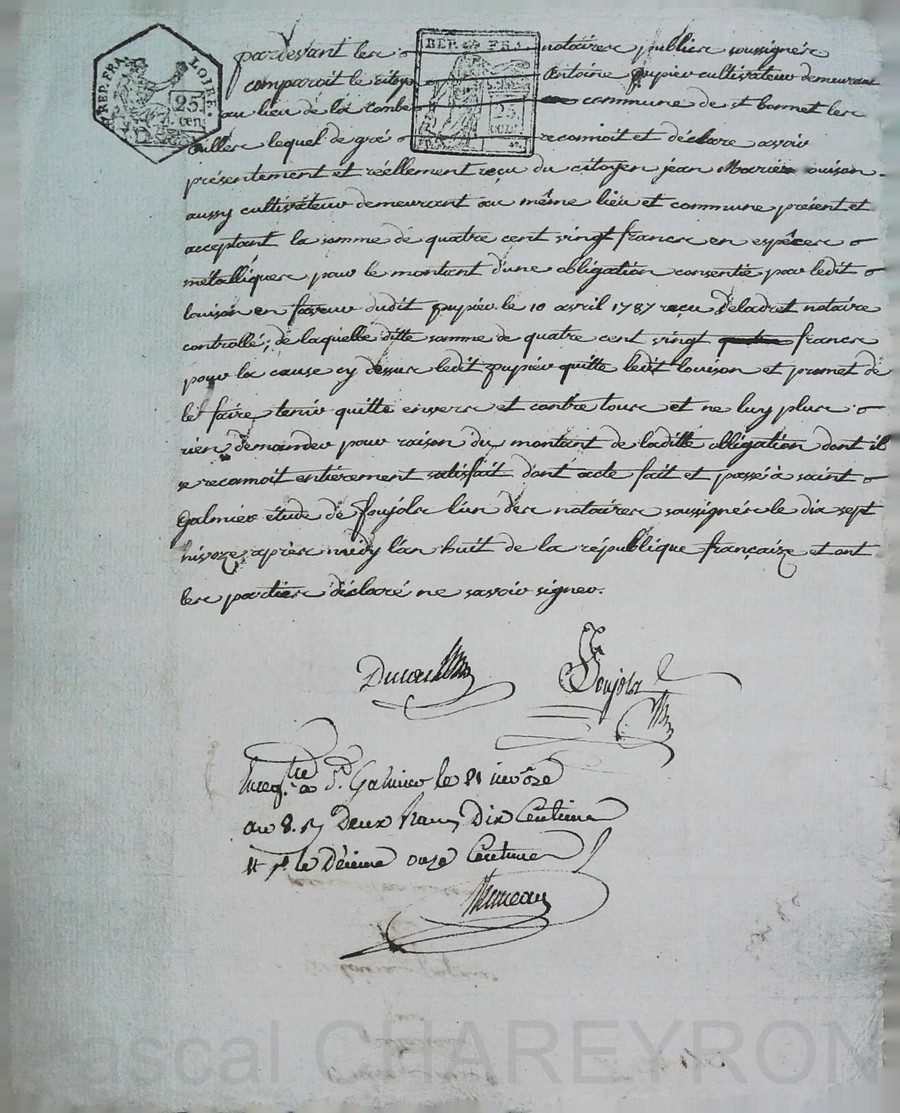 REP. FRA. LOIRE.
25 cen.
REP. FRA.
25
pardevant les notaires publics soussignés
comparoit le citoyen Antoine pupier cultivateur demeurant
au lieu de la combe commune de st bonnet les
oulles lequel de gré reconnoit et déclare avoir
présentement et réellement reçu du citoyen jean Marie ouison
aussy cultivateur demeurant au même lieu et commune présent et
acceptant la somme de quatre cent vingt francs en espèces
métalliques pour le montant d'une obligation consentie par ledit
louison en faveur dudit pupier le 10 avril 1787 reçu notaire
controllé; de laquelle ditte somme de quatre cent vingt francs
pour la cause cy dessus ledit pupier quitte ledit louison et promet de
le faire tenir quitte envers et contre tous et ne luy plus
rien demander pour raison du montant de laditte obligation dont il
se reconnoit entièrement satisfait dont acte fait et passé à saint
Galmier étude de foujols l'un des notaires soussignés le dix sept
nivoze après midy l'an huit de la république française et ont
les parties déclaré ne savoir signer.
Foujols
à St. Galmier le 21 nivôse
an 8. Deux francs Dix Centimes
le Décime onze Centimes
Pascal CHAREYRON